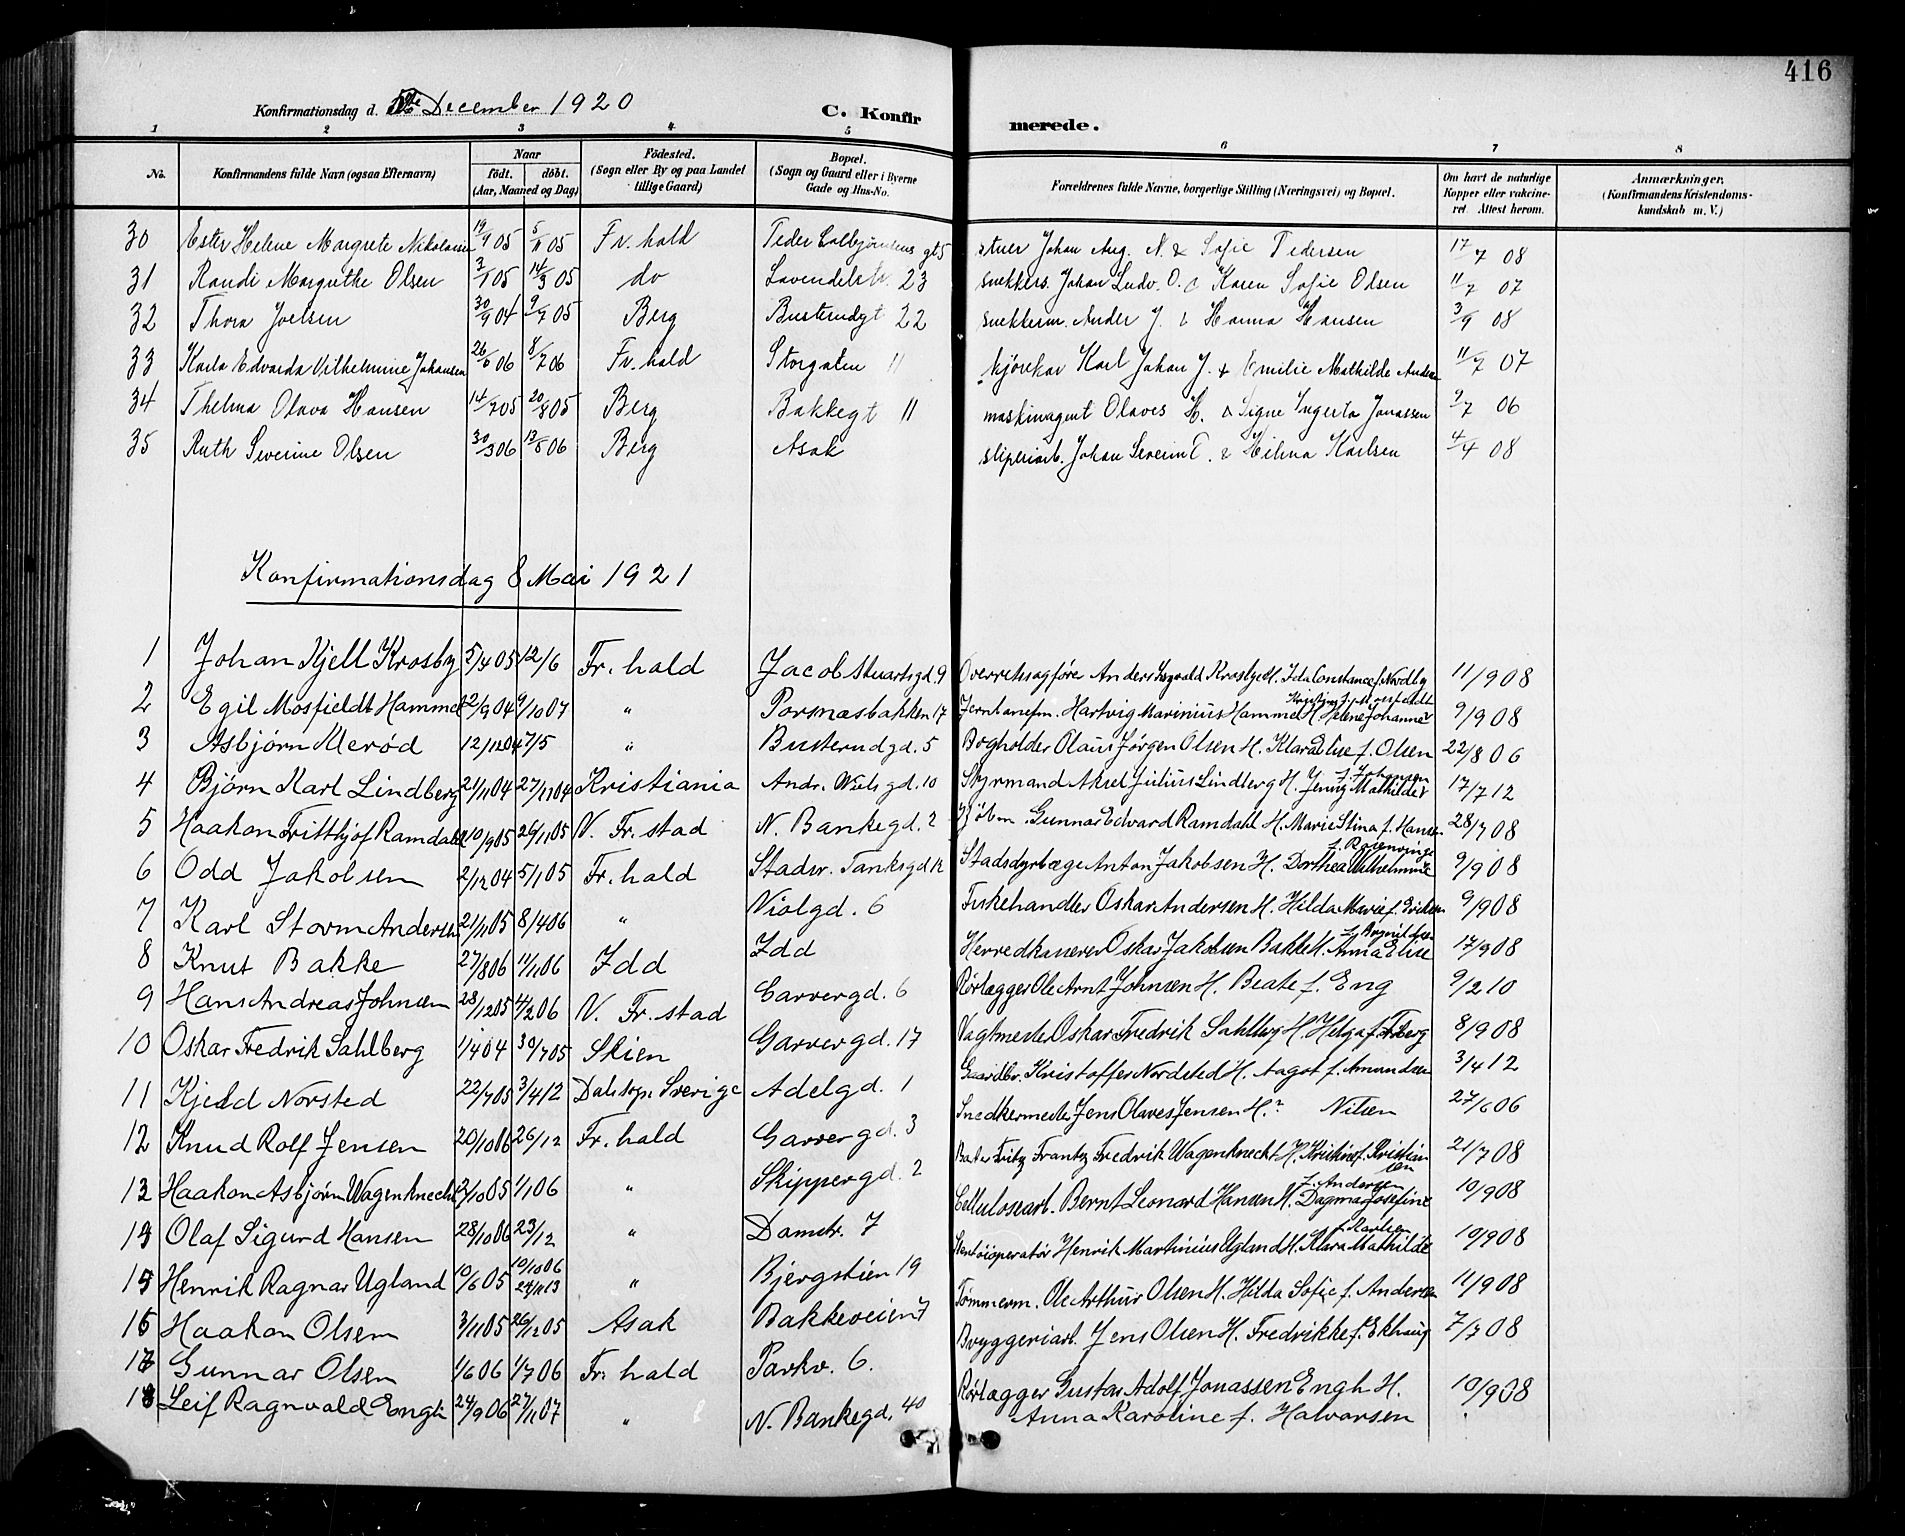 416
Konfirmationsdag d. 5te December 1920
C. Konfirmerede.
1 2 3 4 5 6 7 8
No. Konfirmandens fulde Navn (ogsaa Efternavn) Naar født. døbt. (Aar, Maaned og Dag) Fødested. (Sogn eller By og paa Landet tillige Gaard) Bopæl. (Sogn og Gaard eller i Byerne Gade og Hus-No. Forældrenes fulde Navne, borgerlige Stilling (Næringsvei) og Bopæl. Om havt de naturlige Kopper eller vakcineret. Attest herom. Anmærkninger. (Konfirmandens Kristendomskundskab m. V.)
30 Ester Helene Margrete Nikolaisen 19/9 05 5/11 05 Fr. hald Peder Colbjørnsens gt 5 stuer Johan Aug. N. & Sofie Pedersen 17/7 08
31 Randi Margrethe Olsen 3/1 05 14/3 05 do Lavendelstr. 23 snekkers. Johan Ludv. O. & Karen Sofie Olsen 11/7 07
32 Thora Joelsen 30/9 04 9/7 05 Berg Busterudgt 22 snekkerm. Ander J. & Hanna Hansen 3/9 08
33 Karla Edvarda Vilhelmine Johansen 26/6 06 8/7 06 Fr. hald Storgaten 11 kjørekar Karl Johan J. & Emilie Mathilde Andersen 11/7 07
34 Thelma Olava Hansen 14/7 05 20/8 05 Berg Bakkegt 11 maskinagent Olaves H. & Signe Ingerta Jonassen 9/7 06
35 Ruth Severine Olsen 30/3 06 13/5 06 Berg Asak sliperiarb. Johan Severin O. & Hilma Karlsen 4/4 08
Konfirmationsdag 8 Mai 1921
1 Johan Kjell Krosby 5/4 05 12/6 Fr. hald Jacob Stuartsgd. 9 Overretssagføre Anders Ingvald Krosby H. Ida Constance f. Nordby 11/9 08
2 Egil Mosfjeldt Hammel 22/9 04 9/10 07 " Porsnæsbakken 17 Jernbanefm. Hartvig Marinius Hammel H. Helene Johanne Kristine f. Mosfjeldt 9/9 08
3 Asbjørn Merød 12/12 04 7/5 " Busterudgd. 5 Bogholder Olaus Jørgen Olsen H. Klara Elise f. Olsen 22/8 06
4 Bjørn Karl Lindberg 21/11 04 27/11 04 Kristiania Andr. Wiels gd. 10 Styrmand Aksel Julius Lindberg H. Jenny Mathilde f. Johansen 17/7 12
5 Haakon Frithjof Ramdahl 10/9 05 26/11 05 V. Fr. stad N. Bankegd. 2 Kjøbm. Gunnar Edvard Ramdahl H. Marie Stina f. Hansen 28/7 08
6 Odd Jakobsen 2/12 04 5/1 05 Fr. hald Stadsr. Tanksgd 12 Stadsdyrlæge Anton Jakobsen H. Dorthea Wilhelmine f. Rosenvinge 9/9 08
7 Karl Storm Andersen 21/11 05 8/4 06 " Violgd. 6 Fiskehandler Oskar Andersen H. Hilda Marie f. Eriksen 9/9 08
8 Knut Bakke 27/8 06 11/11 06 Idd Idd Herredkasserer Oskar Jakobsen Bakke H. Anna Elise f. Arnildsen 17/9 08
9 Hans Andreas Johnsen 28/12 05 4/2 06 V. Fr. stad Garvergd. 6 Rørlægger Ole Arnt Johnsen H. Beate f. Eng 9/2 10
10 Oskar Fredrik Sahlberg 1/4 04 30/7 05 Skien Garvergd. 17 Vagtmester Oskar Fredrik Sahlberg H. Helga f. Forberg 8/9 08
11 Kjeld Norsted 22/7 05 3/4 12 Dalstorp. Sverige Adelgd. 1 Gaardbr. Kristoffer Nordsted H. Aagot f. Amundsen 3/4 12
12 Knud Rolf Jensen 20/10 06 26/12 Fr. hald Garvergd. 3 Snedkermester Jens Olaves Jensen H. ? Nilsen 27/6 06
13 Haakon Asbjørn Wagenknecht 2/10 05 1/1 06 " Skippergd. 2 Bager Fritz Frantz Fredrik Wagenknecht H. Kristine f. Kristiansen 21/7 08
14 Olaf Sigurd Hansen 28/10 06 23/12 " Damstr. 7 Cellulosearb. Bernt Leonard Hansen H. Dagmar Josefine f. Andersen 10/9 08
15 Henrik Ragnar Ugland 10/6 05 10/10 06 24/11 13 " Bjergstien 19 Stenhøioperatør Henrik Martinius Ugland H. Klara Mathilde f. Karlsen 10/9 08
16 Haakon Olsen 3/11 05 26/12 05 Asak Bakkeveien 7 Tømmerm. Ole Arthur Olsen H. Hilda Sofie f. Andersen 11/9 08
17 Gunnar Olsen 1/6 06 1/7 06 Fr. hald Parkv. 6. Bryggeriarb. Jens Olsen H. Fredrikke f. Ekhaug 7/7 08
18 Leif Ragnvald Engh 24/9 06 27/11 07 " N. Bankegd. 40 Rørlægger Gustav Adolf Jonassen Engh H. Anna Karoline f. Halvorsen 10/9 08